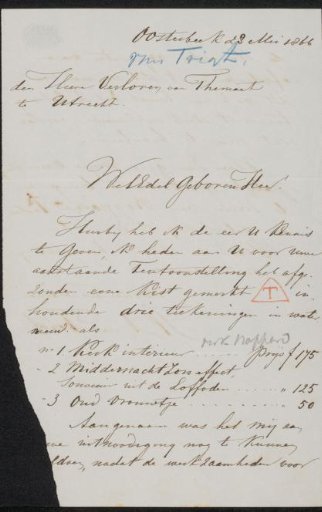 Oosterbeek 23 Mei 1866
van Trigt.
den Heere Verloren van Themaat
te Utrecht.
WelEdel Geboren Heer.
Hierbij heb ik de eer U kennis
te Geven, ik heden aan U voor uwe
aanstaande Tentoonstelling heb afge
zonden eene Kist gemerkt T in-
houdende drie teekeningen in wate
als
No 1 Kerk interieur Prijs f 175
" 2 Middernacht Zon effect
Souvenir uit de Loffoden " 125
" 3 Oud vrouwtje " 50
Aangenaam was het mij
uitnoodiging nog te kunnen
nadat de werkzaamheden voor